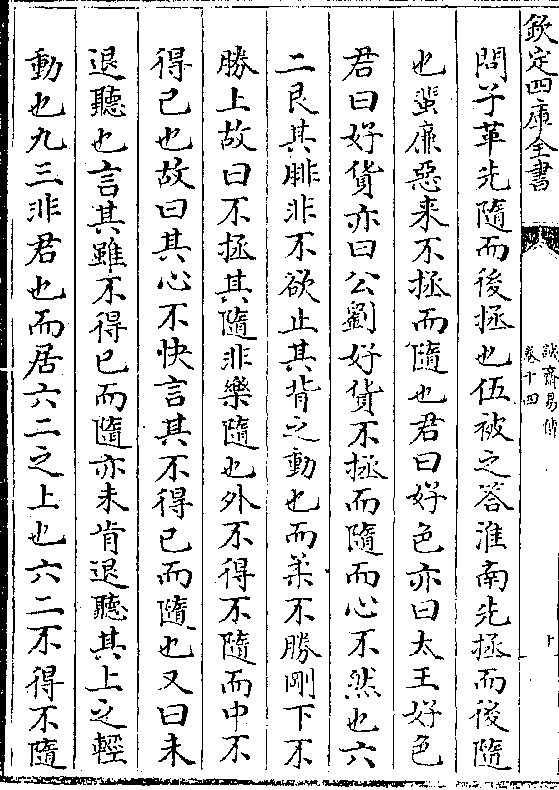 欽定四庫全書
誠齋易傳
卷十四
十
問于革先隨而後拯也伍被之答淮南先拯而後隨
也蜚廉惡来不拯而隨也君曰好色亦曰太王好色
君曰好貨亦曰公劉好貨不拯而隨而心不然也六
二艮其腓非不欲止其背之動也而柔不勝剛下不
勝上故曰不拯其隨非樂隨也外不得不隨而中不
得已也故曰其心不快言其不得已而隨也又曰未
退聽也言其雖不得已而隨亦未肯退聽其上之輕
動也九三非君也而居六二之上也六二不得不隨